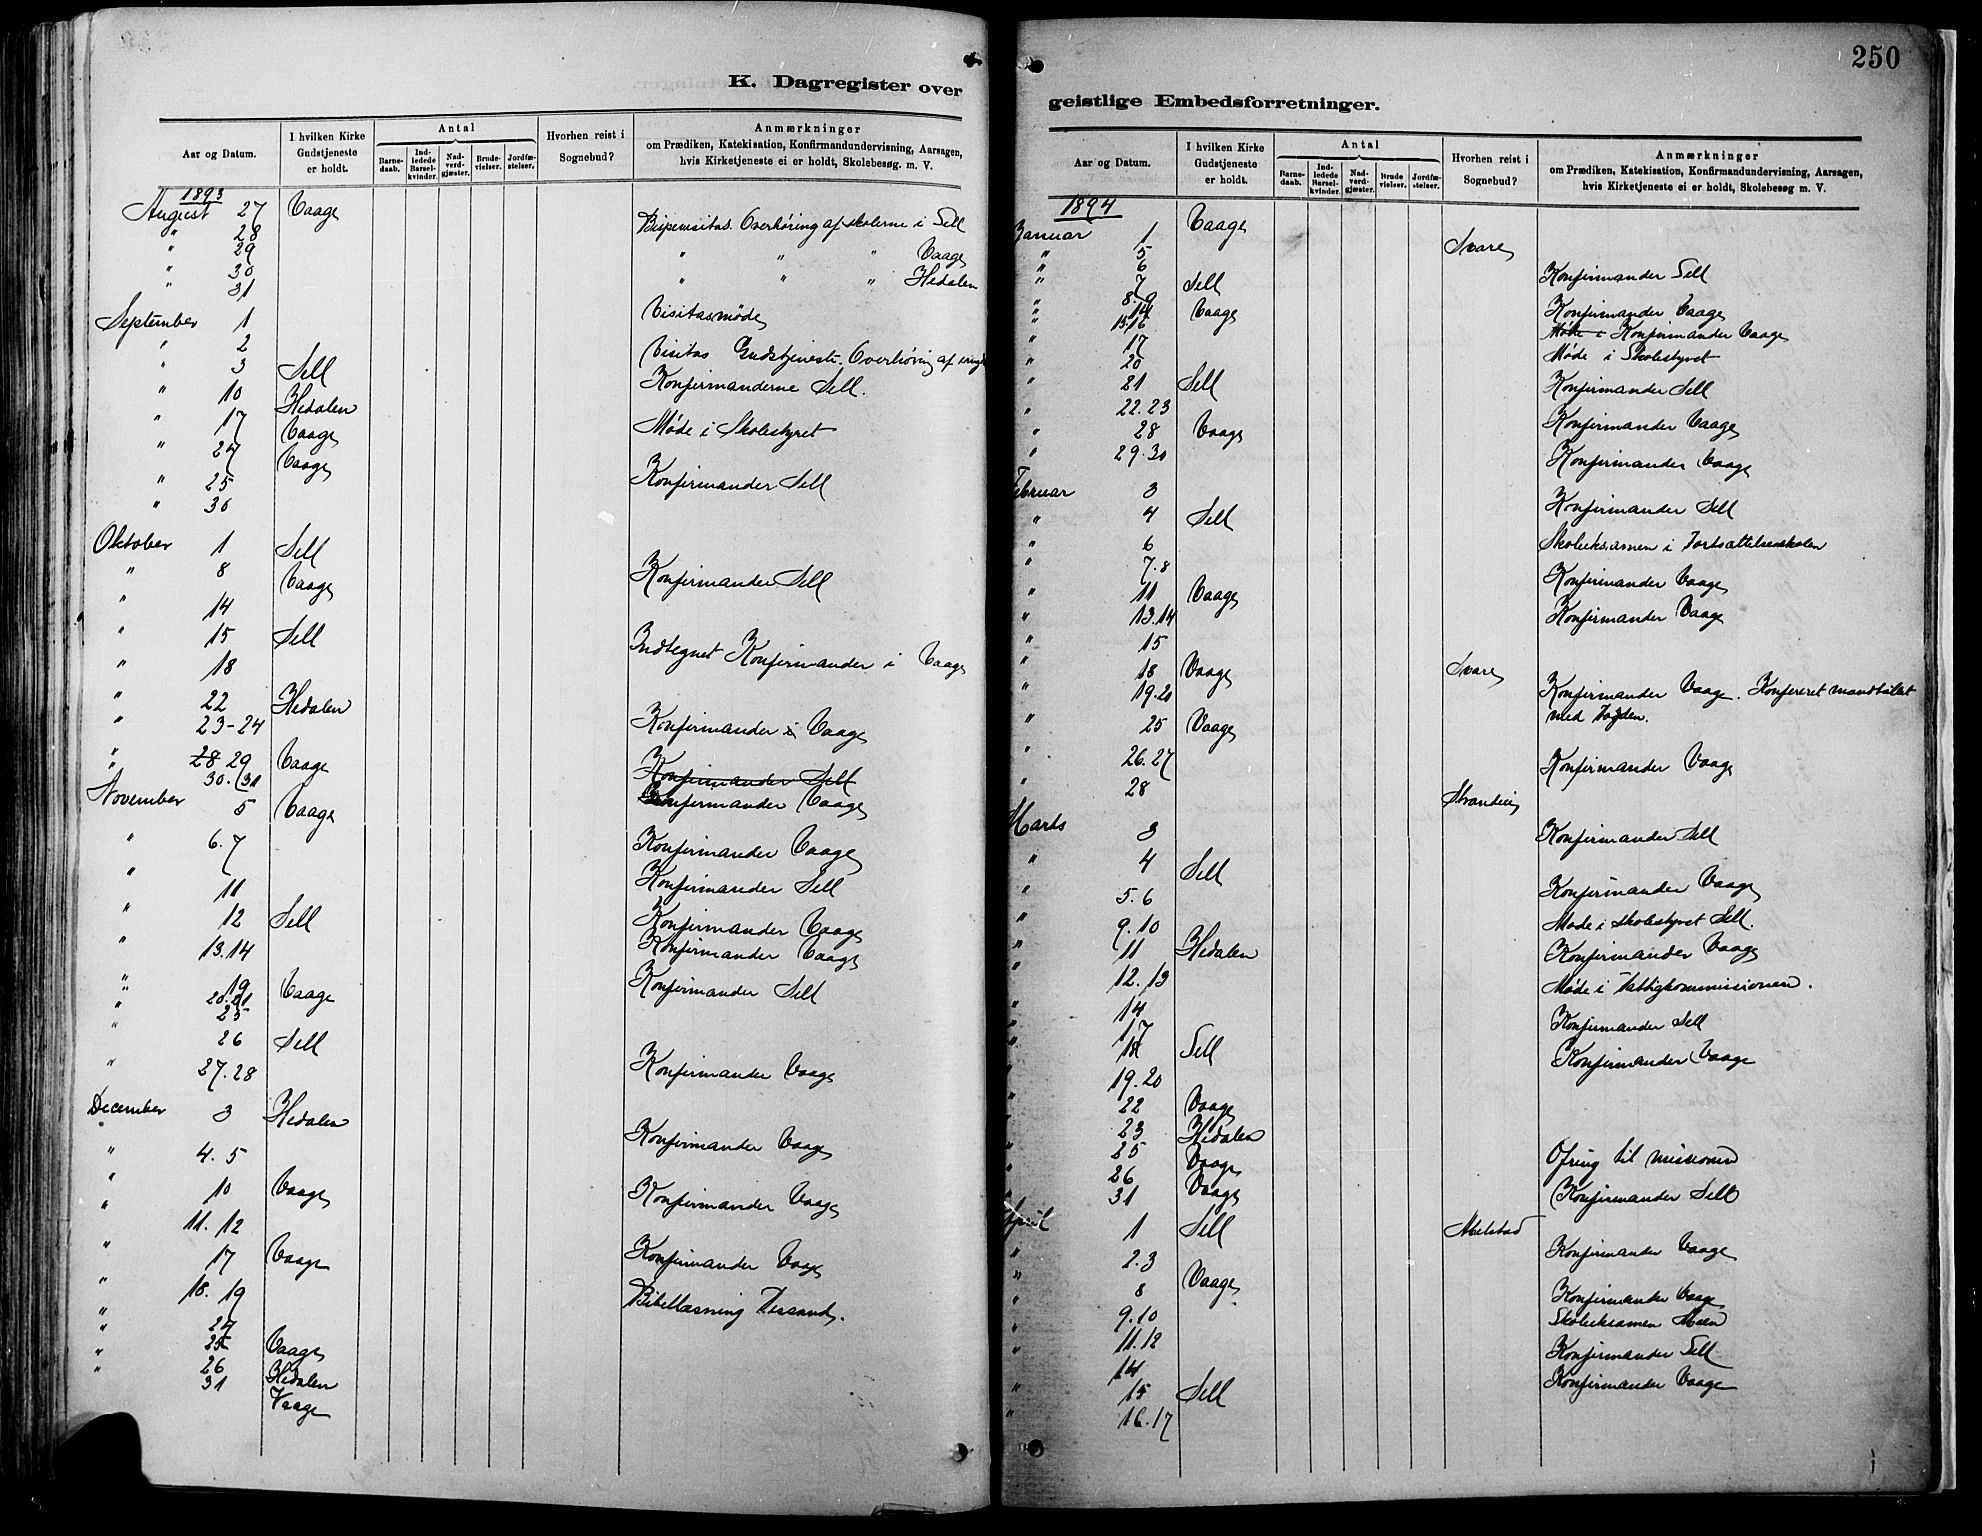 K. Dagregister over
Aar og Datum. I hvilken Kirke Gudstjeneste er holdt. Antal Barnedaab. Indledede Barselkvinder. Nadverdgjæster. Brudevielser. Jordfæstelser. Hvorhen reist i Sognebud? Anmærkninger om Prædiken, Katekisation, Konfirmandundervisning, Aarsagen, hvis Kirketjeneste ei er holdt, Skolebesøg m. V.
1893
August 27 Vaage
" 28 Bispevisitas. Overhøring af skolerne i Sell
" 29 " " " Vaage
" 30 " " " Hedalen
" 31
September 1 Visitasmøde
" 2
" 3 Sell Visitas Gudstjeneste. Overhøring af
" 10 Hedalen Konfirmanderne Sell.
" 17 Vaage Møde i Skolestyret
" 24 Vaage
" 25 Konfirmander Sell
" 30
Oktober 1 Sell
" 8 Vaage Konfirmander Sell
" 14
" 15 Sell
" 18 Indtegnet Konfirmander i Vaage
" 22 Hedalen
" 23-24 Konfirmander i Vaage
" 28 29 Vaage Konfirmander Sell
30. 31 Konfirmander Vaage
November 5 Vaage
" 6. 7 Konfirmander Vaage
" 11 Konfirmander Sell
" 12 Sell Konfirmander Vaage
" 13. 14 Konfirmander Vaage
" 19 Vaage Konfirmander Sell
" 20. 21
" 25
" 26 Sell
" 27. 28 Konfirmander Vaage
December 3 Hedalen
" 4. 5 Konfirmander Vaage
" 10 Vaage
" 11. 12 Konfirmander Vaage
" 17 Vaage Konfirmander Vaage
" 18. 19 Bibellæsning Tessand.
" 24
" 25 Vaage
" 26 Hedalen
" 31 Vaage
250
geistlige Embedsforretninger.
Aar og Datum. I hvilken Kirke Gudstjeneste er holdt. Antal Barnedaab. Indledede Barselkvinder. Nadverdgjæster. Brudevielser. Jordfæstelser. Hvorhen reist i Sognebud? Anmærkninger om Prædiken, Katekisation, Konfirmandundervisning, Aarsagen, hvis Kirketjeneste ei er holdt, Skolebesøg m. V.
1894
Januar 1 Vaage
" 5 Svare
" 6 Konfirmander Sell
" 7 Sell
" 8. 9 Konfirmander Vaage
" 14 Vaage
" 15. 16 Møde i Konfirmander Vaage
" 17 Møde i Skolestyret
" 20 Konfirmander Sell
" 21 Sell
" 22. 23 Konfirmander Vaage
" 28 Vaage
" 29. 30 Konfirmander Vaage
Februar 3 Konfirmander Sell
" 4 Sell
" 6 Skoleeksamen i Fortsættelsesskolen
" 7. 8 Konfirmander Vaage
" 11 Vaage
" 13. 14 Konfirmander Vaage
" 15 Svare
" 18 Vaage
" 19. 20 Konfirmander Vaage. Konfereret mandtallet
med Fogden.
" 25 Vaage
" 26. 27 Konfirmander Vaage
" 28
Marts 3 Konfirmander Sell
" 4 Sell
" 5. 6 Konfirmander Vaage
" 9. 10 Møde i skolestyret Sell.
" 11 Hedalen
" 12. 13 Konfirmander Vaage
" 14 Møde i Fattigkommissionen.
" 17 Konfirmander Sell
" 18 Sell
" 19. 20 Konfirmander Vaage
" 22 Vaage
" 23 Hedalen
" 25 Vaage Ofring til missionen
" 26 Vaage
" 31 Konfirmander Sell
April 1 Sell
" 2. 3 Konfirmander Vaage
" 8 Vaage
" 9. 10 Konfirmander Vaage
" 11. 12 Skoleeksamen
" 14 Konfirmander Sell
" 15 Sell
" 16. 17 Konfirmander Vaage